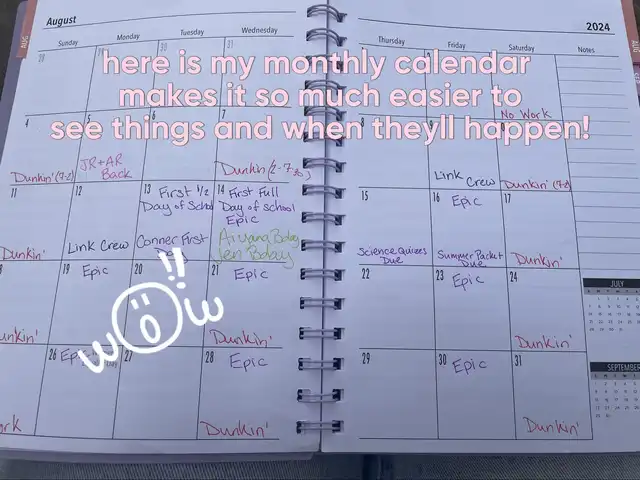 August
2024
Sunday
Monday
Tuesday
Wednesday
Thursday
Friday
Saturday
Notes
28
30
31
here is my monthly calendar
makes it so much easier to
see things and when theyll happen!
No Work
4
5
6
7
Dunkin' (7-2)
JR+AR
Back
Dunkin
Link
Crew
Dunkin'
11
12
13 First 1/2
Day of School
14 First Full
Day of School
Epic
15
16 Epic
17
Dunkin'
Link Crew
Conner First
Science Quizzes
Due
Summer Packet
Due
Dunkin'
19 Epic
20
21 Epic
22
23 Epic
24
unkin'
wow!!
Dunkin'
Dunkin'
JULY
26
27
28 Epic
29
30 Epic
31
SEPTEMBER
rk
Dunkin'
Dunkin'